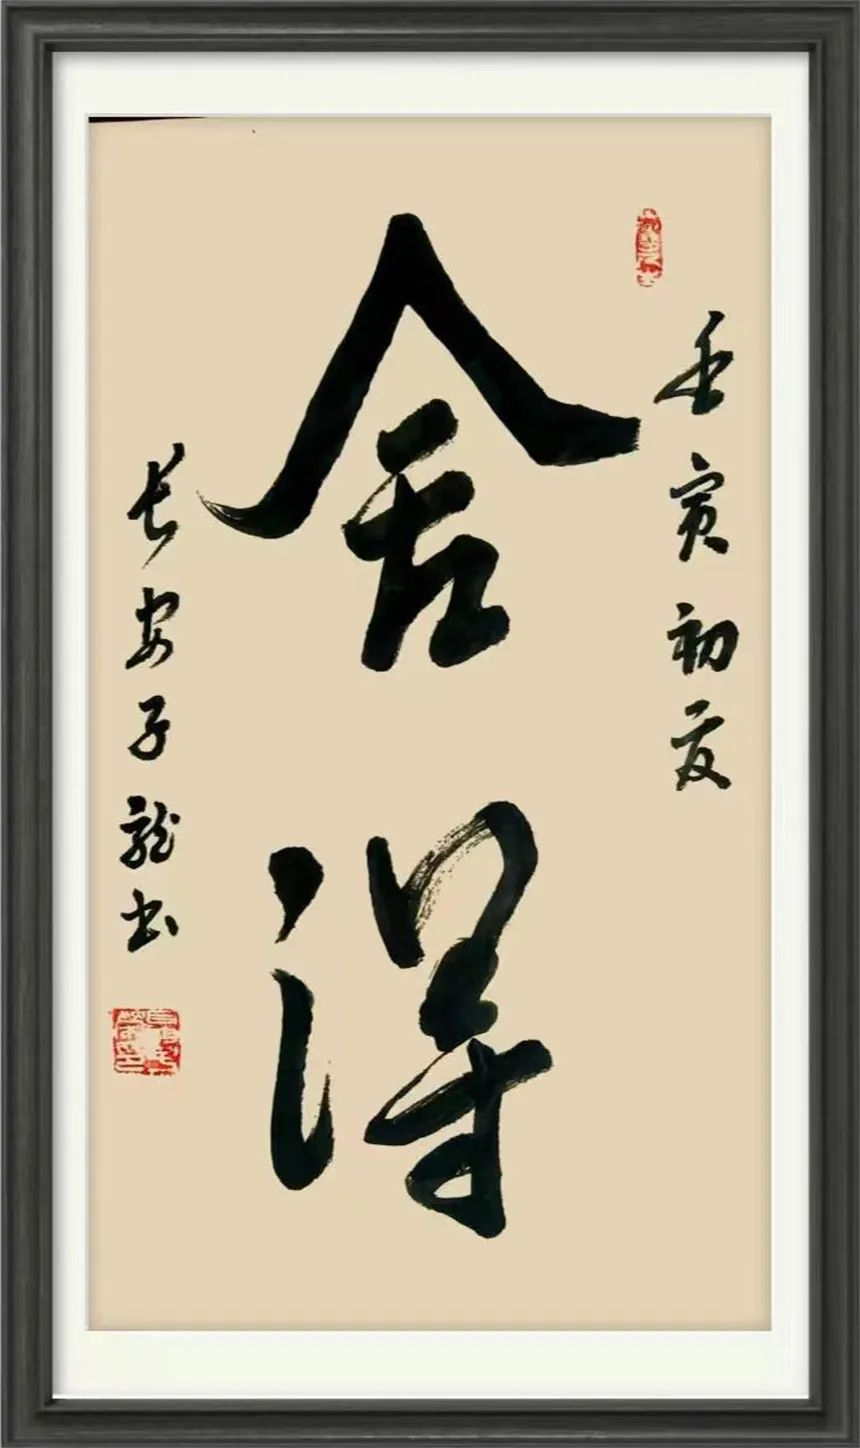 壬寅初夏
舍得
长安子龙书